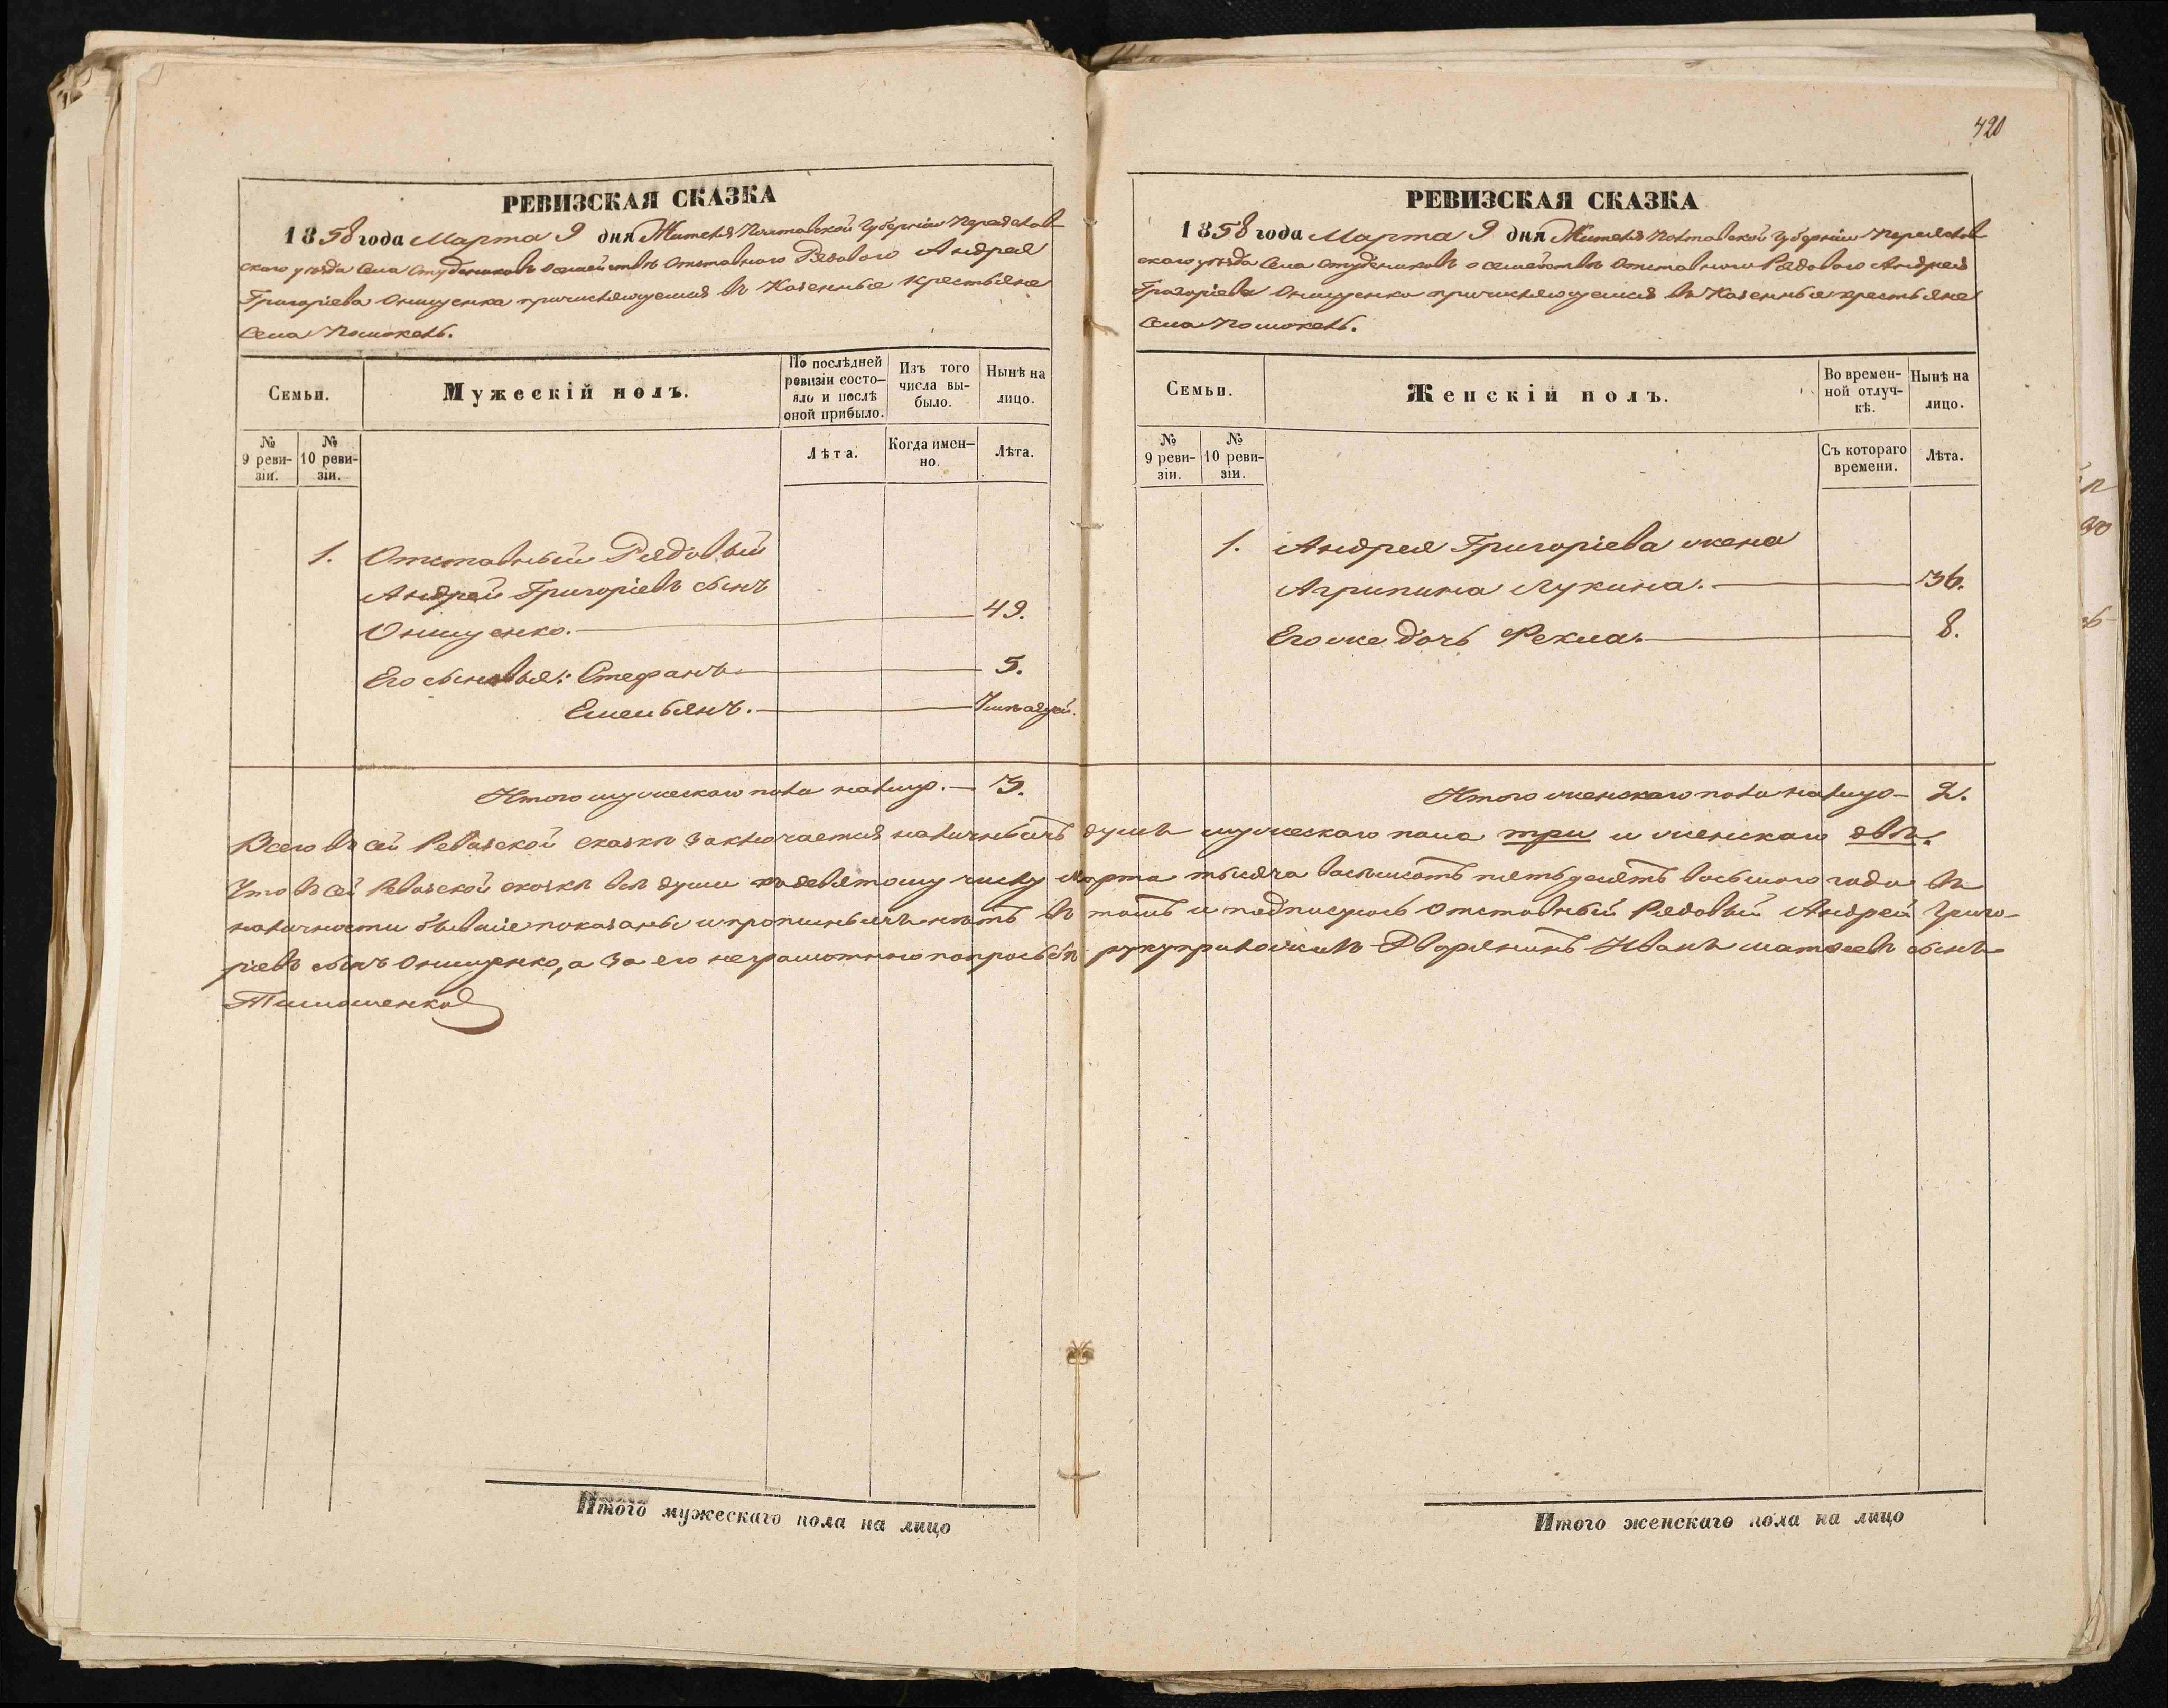 420
РЕВИЗСКАЯ СКАЗКА
1858 года Марта 9 дня Жителя Полтавской Губернии Переяслов-
скаго уѣзда Села Студениковъ о семействѣ Отставного Рядового Андрея
Григоріева Онищенка причисляющемся въ Казенные крестьяне
Села Помоклъ.
Семьи.
Мужескій полъ.
По послѣдней ревизіи состо-
яло и послѣ оной прибыло.
Изъ того числа вы-
было.
Нынѣ на лицо.
№ 9 реви-
зіи.
№ 10 реви-
зіи.
Лѣта.
Когда имен-
но.
Лѣта.
1. Отставный Рядовый
Андрей Григоріевъ сынъ
Онищенко. 49.
Его сыновья: Стефанъ 5.
Емельянъ. 7 мѣсяцей.
Итого мужескаго пола налицо. 3.
РЕВИЗСКАЯ СКАЗКА
1858 года Марта 9 дня Жителя Полтавской Губерніи Переяслов-
скаго уѣзда Села Студениковъ о семействѣ Отставного Рядового Андрея
Григоріева Онищенка причисляющемся въ Казенные крестьяне
Села Помоклъ.
Семьи.
Женскій полъ.
Во времен-
ной отлуч-
кѣ.
Нынѣ на лицо.
№ 9 реви-
зіи.
№ 10 реви-
зіи.
Съ котораго времени.
Лѣта.
1. Андрея Григоріева жена
Агрипина Лукина. 36.
Его же дочь Фекла. 8.
Итого женскаго пола налицо 2.
Всего въ сей Ревизской сказкѣ заключается наличныхъ душъ мужескаго пола три и женскаго двѣ.
Что въ сей Ревизской сказкѣ всѣ души къ девятому числу Марта тысяча восемьсотъ пятьдесятъ восьмого года въ
наличности бывшіе показаны и прописныхъ нѣтъ въ томъ и подписуюсь Отставный Рядовый Андрей Григо-
ріевъ сынъ Онищенко, а за его неграмотного по прозьбѣ рукуприложилъ Дворянинъ Иванъ Матвеевъ сынъ
Тимошенко
Итого мужескаго пола на лицо
Итого женскаго пола на лицо